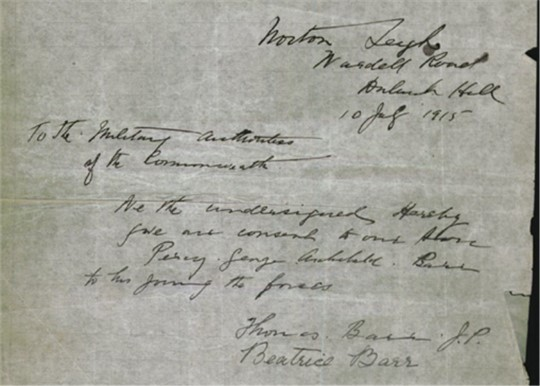 Norton Leigh
Wardell Road
Dulwich Hill
10 July 1915
To the Military Authorities
of the Commonwealth
We the undersigned Hereby
give our consent to our Son
Percy George Archibald Barr
to his joining the forces
Thomas Barr J.P.
Beatrice Barr